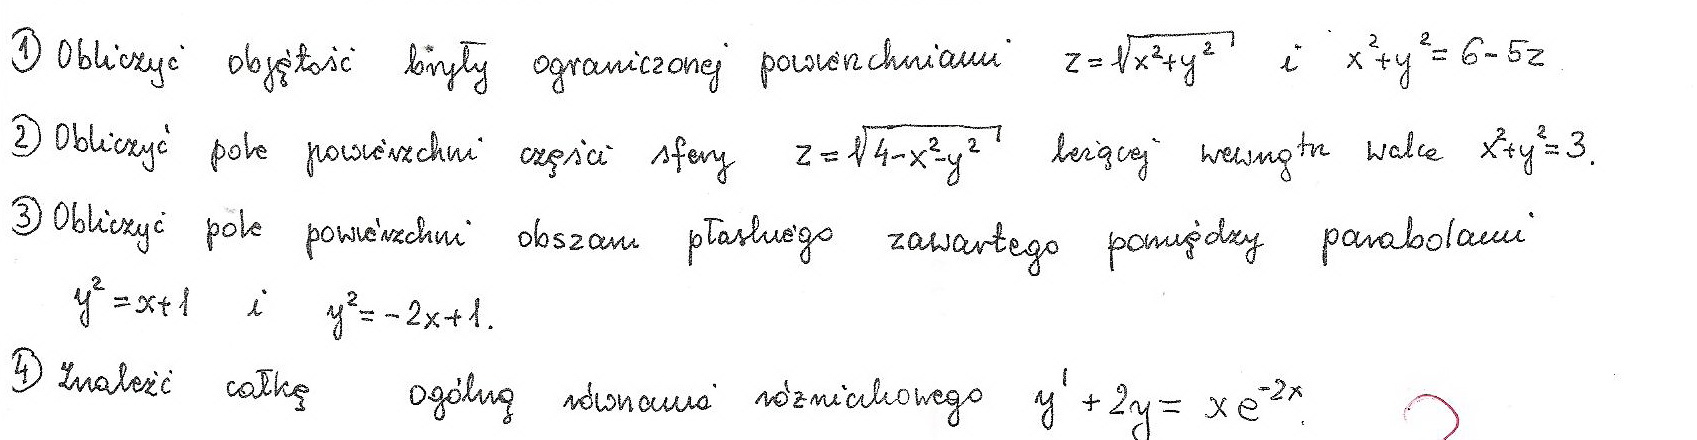 ① Obliczyć objętość bryły ograniczonej powierzchniami z=√(x²+y²) i x²+y²=6-5z
② Obliczyć pole powierzchni części sfery z=√(4-x²-y²) leżącej wewnątrz walca x²+y²=3.
③ Obliczyć pole powierzchni obszaru płaskiego zawartego pomiędzy parabolami
y²=x+1 i y²=-2x+1.
④ Znaleźć całkę ogólną równania różniczkowego y'+2y=xe⁻²ˣ.